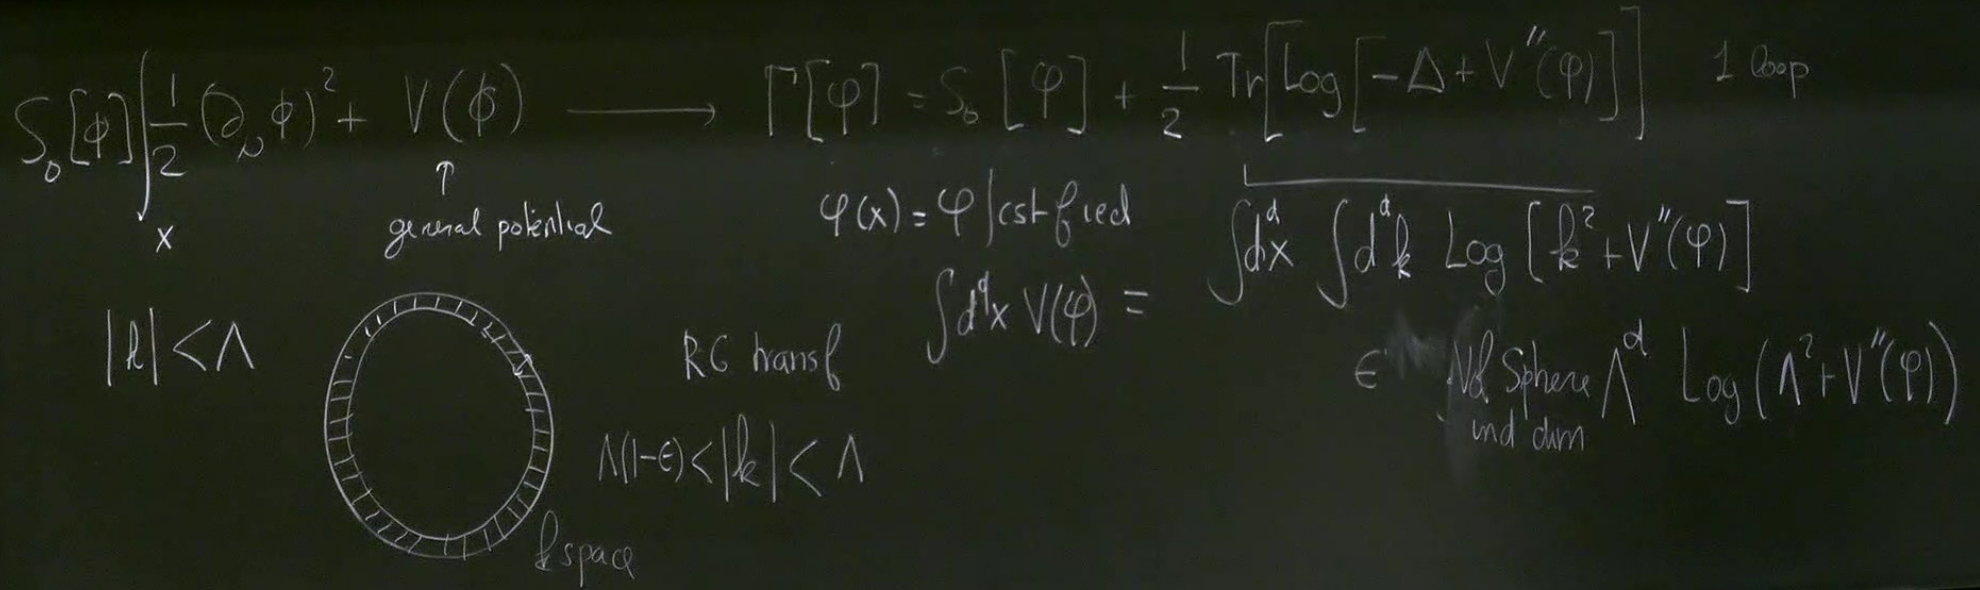 S₀[ϕ] ∫ₓ 1/2 (∂_μ ϕ)² + V(ϕ) ⟶ Γ[φ] = S₀[φ] + 1/2 Tr[Log[-Δ+V''(φ)]] 1 loop
↑
general potential
φ(x) = φ | cst field
∫dᵈx ∫dᵈk Log[k²+V''(φ)]
|k| < Λ
RG transf
∫dᵈx V(φ) =
ϵ Vol Sphere Λᵈ Log(Λ²+V''(φ))
in d dim
Λ(1-ϵ) < |k| < Λ
k space